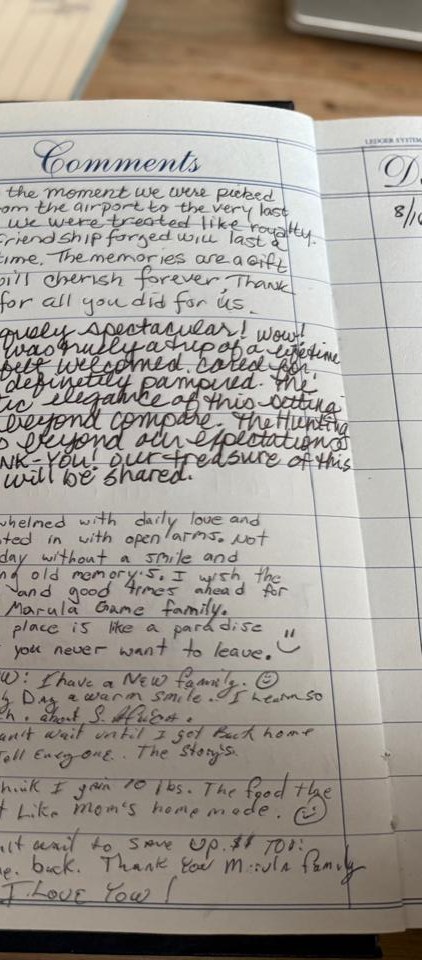 LEDGER SYSTEM
Comments
D
8/1
the moment we were picked
om the airport to the very last
we were treated like royalty.
friendship forged will last a
time. The memories are a gift
will cherish forever, Thank
for all you did for us.
spectacular! Wow!
was truly a trip of a lifetime
felt welcomed, cared for,
definitely pampered. The
tic elegance of this setting
beyond compare. The Hunting
beyond our expectations
NK-YOU! our treasure of this
will be shared.
whelmed with daily love and
ted in with open arms. Not
day without a smile and
nd old memory's. I wish the
and good times ahead for
Marula Game family.
place is like a paradise
you never want to leave.
W: I have a New family.
Day a warm smile. I learn so
h. about S. Africa.
an't wait until I get Back home
Tell Everyone. The Story's
think I gain 10 lbs. The food
t Like Mom's home made.
n't wait to save up $$ TO:
e. back. Thank You Marula family
I LOVE YOU!